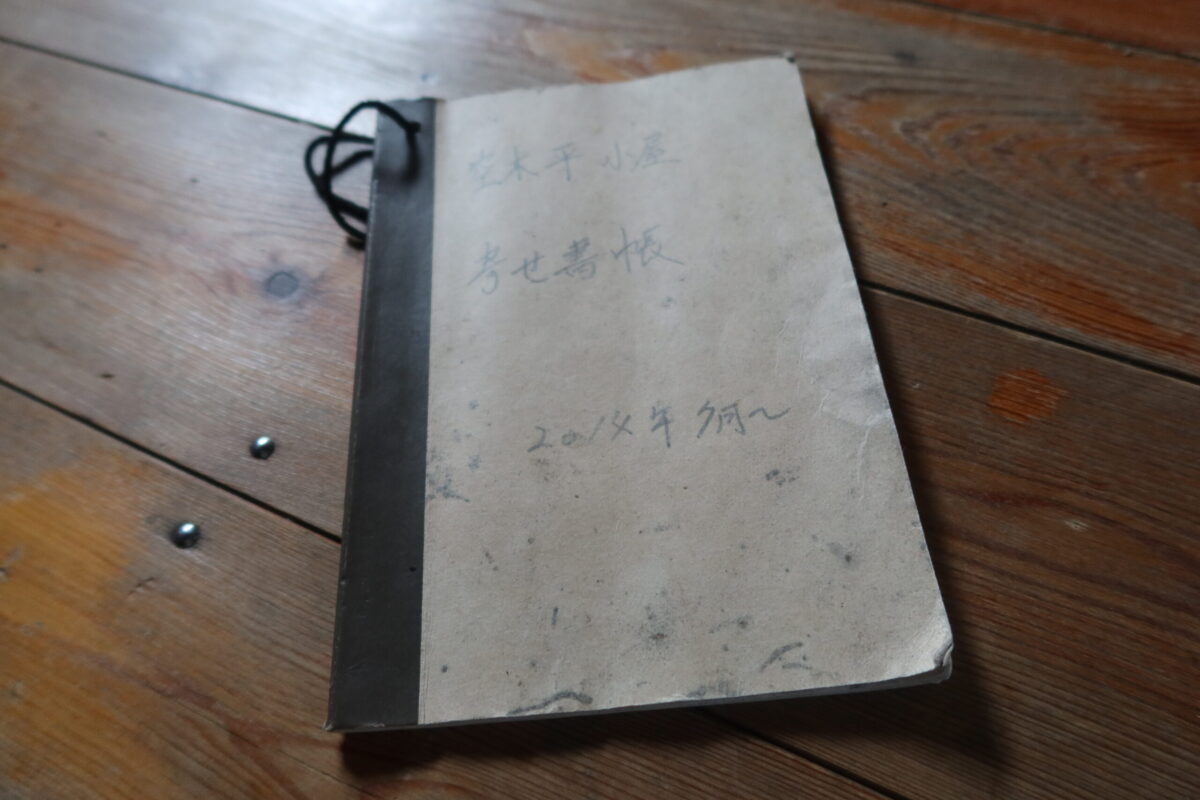 空木平小屋
寄せ書帳
2014年 月〜